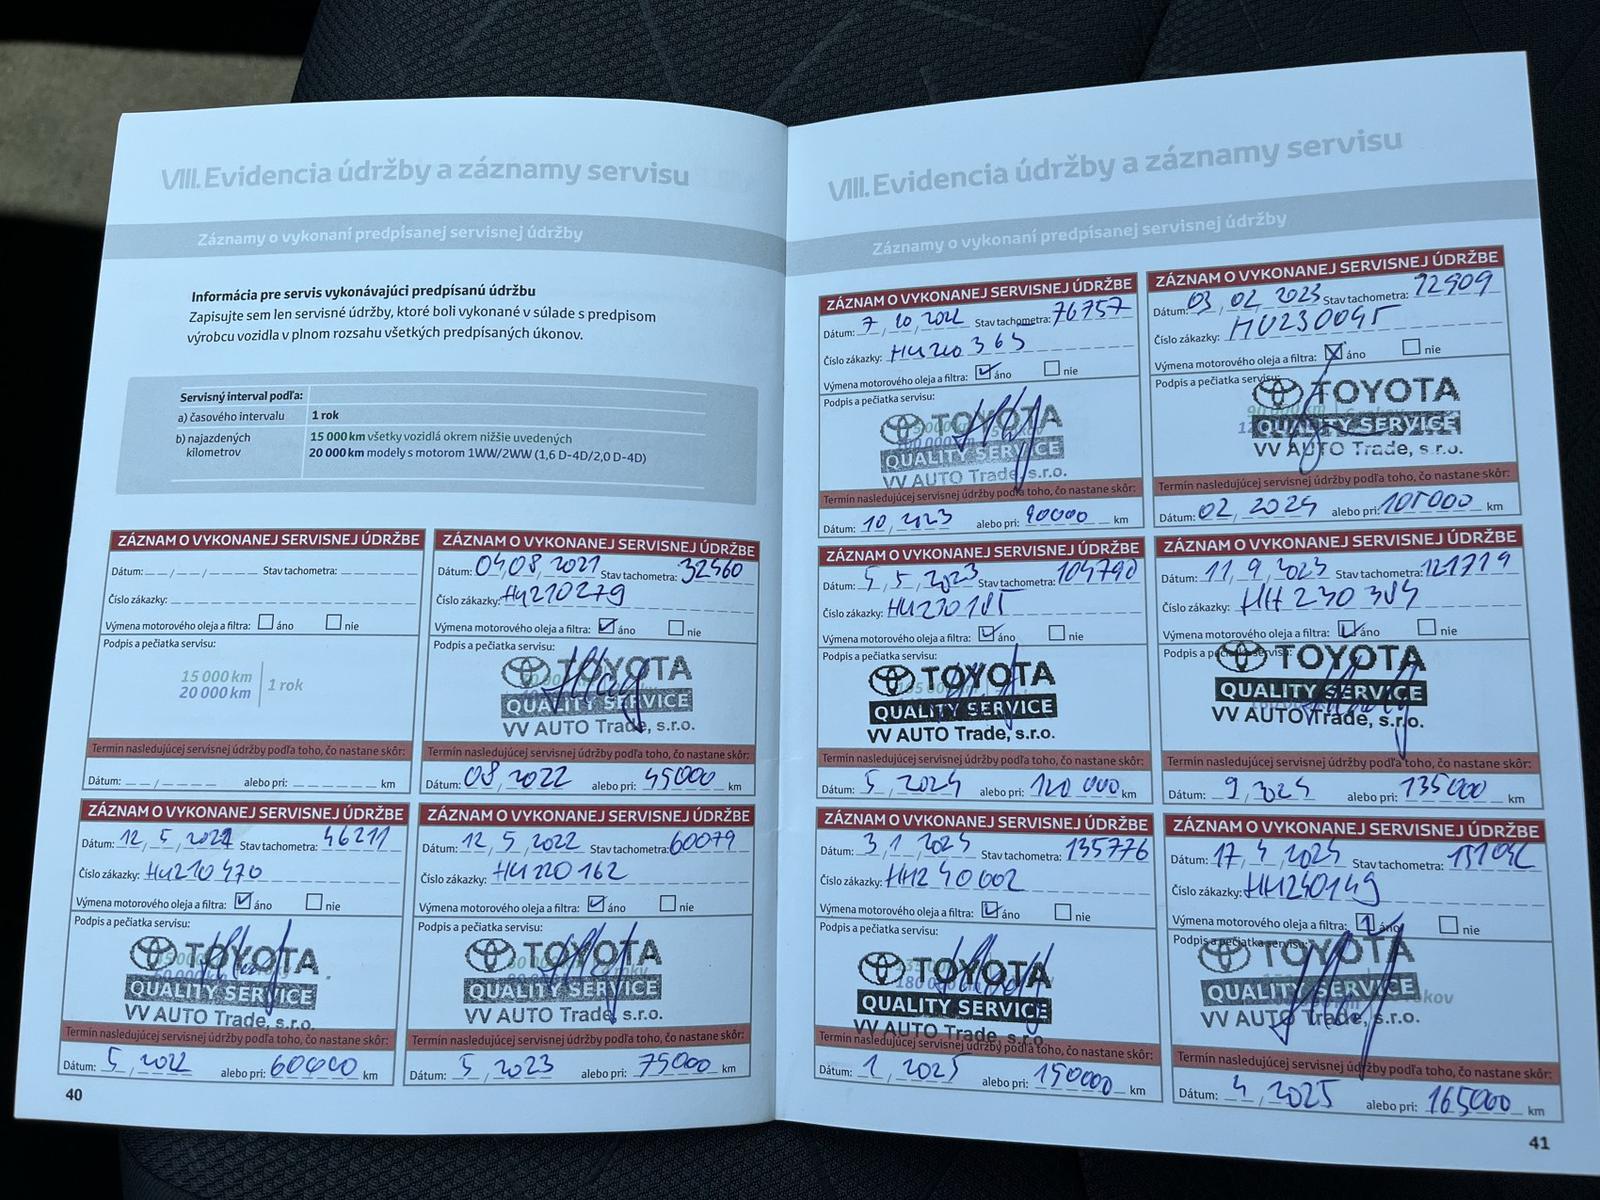 VIII. Evidencia údržby a záznamy servisu
Záznamy o vykonaní predpísanej servisnej údržby
Informácia pre servis vykonávajúci predpísanú údržbu
Zapisujte sem len servisné údržby, ktoré boli vykonané v súlade s predpisom
výrobcu vozidla v plnom rozsahu všetkých predpísaných úkonov.
Servisný interval podľa:
a) časového intervalu 1 rok
b) najazdených 15 000 km všetky vozidlá okrem nižšie uvedených
kilometrov 20 000 km modely s motorom 1WW/2WW (1,6 D-4D/2,0 D-4D)
ZÁZNAM O VYKONANEJ SERVISNEJ ÚDRŽBE
Dátum: __/__/____ Stav tachometra:
Číslo zákazky:
Výmena motorového oleja a filtra: áno nie
Podpis a pečiatka servisu:
15 000 km
20 000 km 1 rok
Termín nasledujúcej servisnej údržby podľa toho, čo nastane skôr:
Dátum: __/____ alebo pri: km
ZÁZNAM O VYKONANEJ SERVISNEJ ÚDRŽBE
Dátum: 04/08/2021 Stav tachometra: 32560
Číslo zákazky: HU210279
Výmena motorového oleja a filtra: áno nie
Podpis a pečiatka servisu:
TOYOTA
QUALITY SERVICE
VV AUTO Trade, s.r.o.
Termín nasledujúcej servisnej údržby podľa toho, čo nastane skôr:
Dátum: 08/2022 alebo pri: 45000 km
ZÁZNAM O VYKONANEJ SERVISNEJ ÚDRŽBE
Dátum: 12/5/ Stav tachometra: 46211
Číslo zákazky: HU210470
Výmena motorového oleja a filtra: áno nie
Podpis a pečiatka servisu:
TOYOTA
QUALITY SERVICE
VV AUTO Trade, s.r.o.
Termín nasledujúcej servisnej údržby podľa toho, čo nastane skôr:
Dátum: 5/2022 alebo pri: 60000 km
ZÁZNAM O VYKONANEJ SERVISNEJ ÚDRŽBE
Dátum: 12/5/2022 Stav tachometra: 60079
Číslo zákazky: HU220162
Výmena motorového oleja a filtra: áno nie
Podpis a pečiatka servisu:
TOYOTA
QUALITY SERVICE
VV AUTO Trade, s.r.o.
Termín nasledujúcej servisnej údržby podľa toho, čo nastane skôr:
Dátum: 5/2023 alebo pri: 75000 km
40
VIII. Evidencia údržby a záznamy servisu
Záznamy o vykonaní predpísanej servisnej údržby
ZÁZNAM O VYKONANEJ SERVISNEJ ÚDRŽBE
Dátum: 7/10/2022 Stav tachometra: 76757
Číslo zákazky: HU220365
Výmena motorového oleja a filtra: áno nie
Podpis a pečiatka servisu:
TOYOTA
QUALITY SERVICE
VV AUTO Trade, s.r.o.
Termín nasledujúcej servisnej údržby podľa toho, čo nastane skôr:
Dátum: 10/2023 alebo pri: 90000 km
ZÁZNAM O VYKONANEJ SERVISNEJ ÚDRŽBE
Dátum: 03/02/2023 Stav tachometra:
Číslo zákazky: HU230045
Výmena motorového oleja a filtra: áno nie
Podpis a pečiatka servisu:
TOYOTA
QUALITY SERVICE
VV AUTO Trade, s.r.o.
Termín nasledujúcej servisnej údržby podľa toho, čo nastane skôr:
Dátum: 02/2024 alebo pri: 105000 km
ZÁZNAM O VYKONANEJ SERVISNEJ ÚDRŽBE
Dátum: 5/5/2023 Stav tachometra: 104790
Číslo zákazky: HU230185
Výmena motorového oleja a filtra: áno nie
Podpis a pečiatka servisu:
TOYOTA
QUALITY SERVICE
VV AUTO Trade, s.r.o.
Termín nasledujúcej servisnej údržby podľa toho, čo nastane skôr:
Dátum: 5/2024 alebo pri: 120 000 km
ZÁZNAM O VYKONANEJ SERVISNEJ ÚDRŽBE
Dátum: 11/9/2023 Stav tachometra: 121719
Číslo zákazky: HH230384
Výmena motorového oleja a filtra: áno nie
Podpis a pečiatka servisu:
TOYOTA
QUALITY SERVICE
VV AUTO Trade, s.r.o.
Termín nasledujúcej servisnej údržby podľa toho, čo nastane skôr:
Dátum: 9/2024 alebo pri: 135000 km
ZÁZNAM O VYKONANEJ SERVISNEJ ÚDRŽBE
Dátum: 3/1/2024 Stav tachometra: 135776
Číslo zákazky: HH240002
Výmena motorového oleja a filtra: áno nie
Podpis a pečiatka servisu:
TOYOTA
QUALITY SERVICE
VV AUTO Trade, s.r.o.
Termín nasledujúcej servisnej údržby podľa toho, čo nastane skôr:
Dátum: 1/2025 alebo pri: 150000 km
ZÁZNAM O VYKONANEJ SERVISNEJ ÚDRŽBE
Dátum: 17/4/2024 Stav tachometra:
Číslo zákazky: HH240149
Výmena motorového oleja a filtra: áno nie
Podpis a pečiatka servisu:
TOYOTA
QUALITY SERVICE
VV AUTO Trade, s.r.o.
Termín nasledujúcej servisnej údržby podľa toho, čo nastane skôr:
Dátum: 4/2025 alebo pri: 165000 km
41